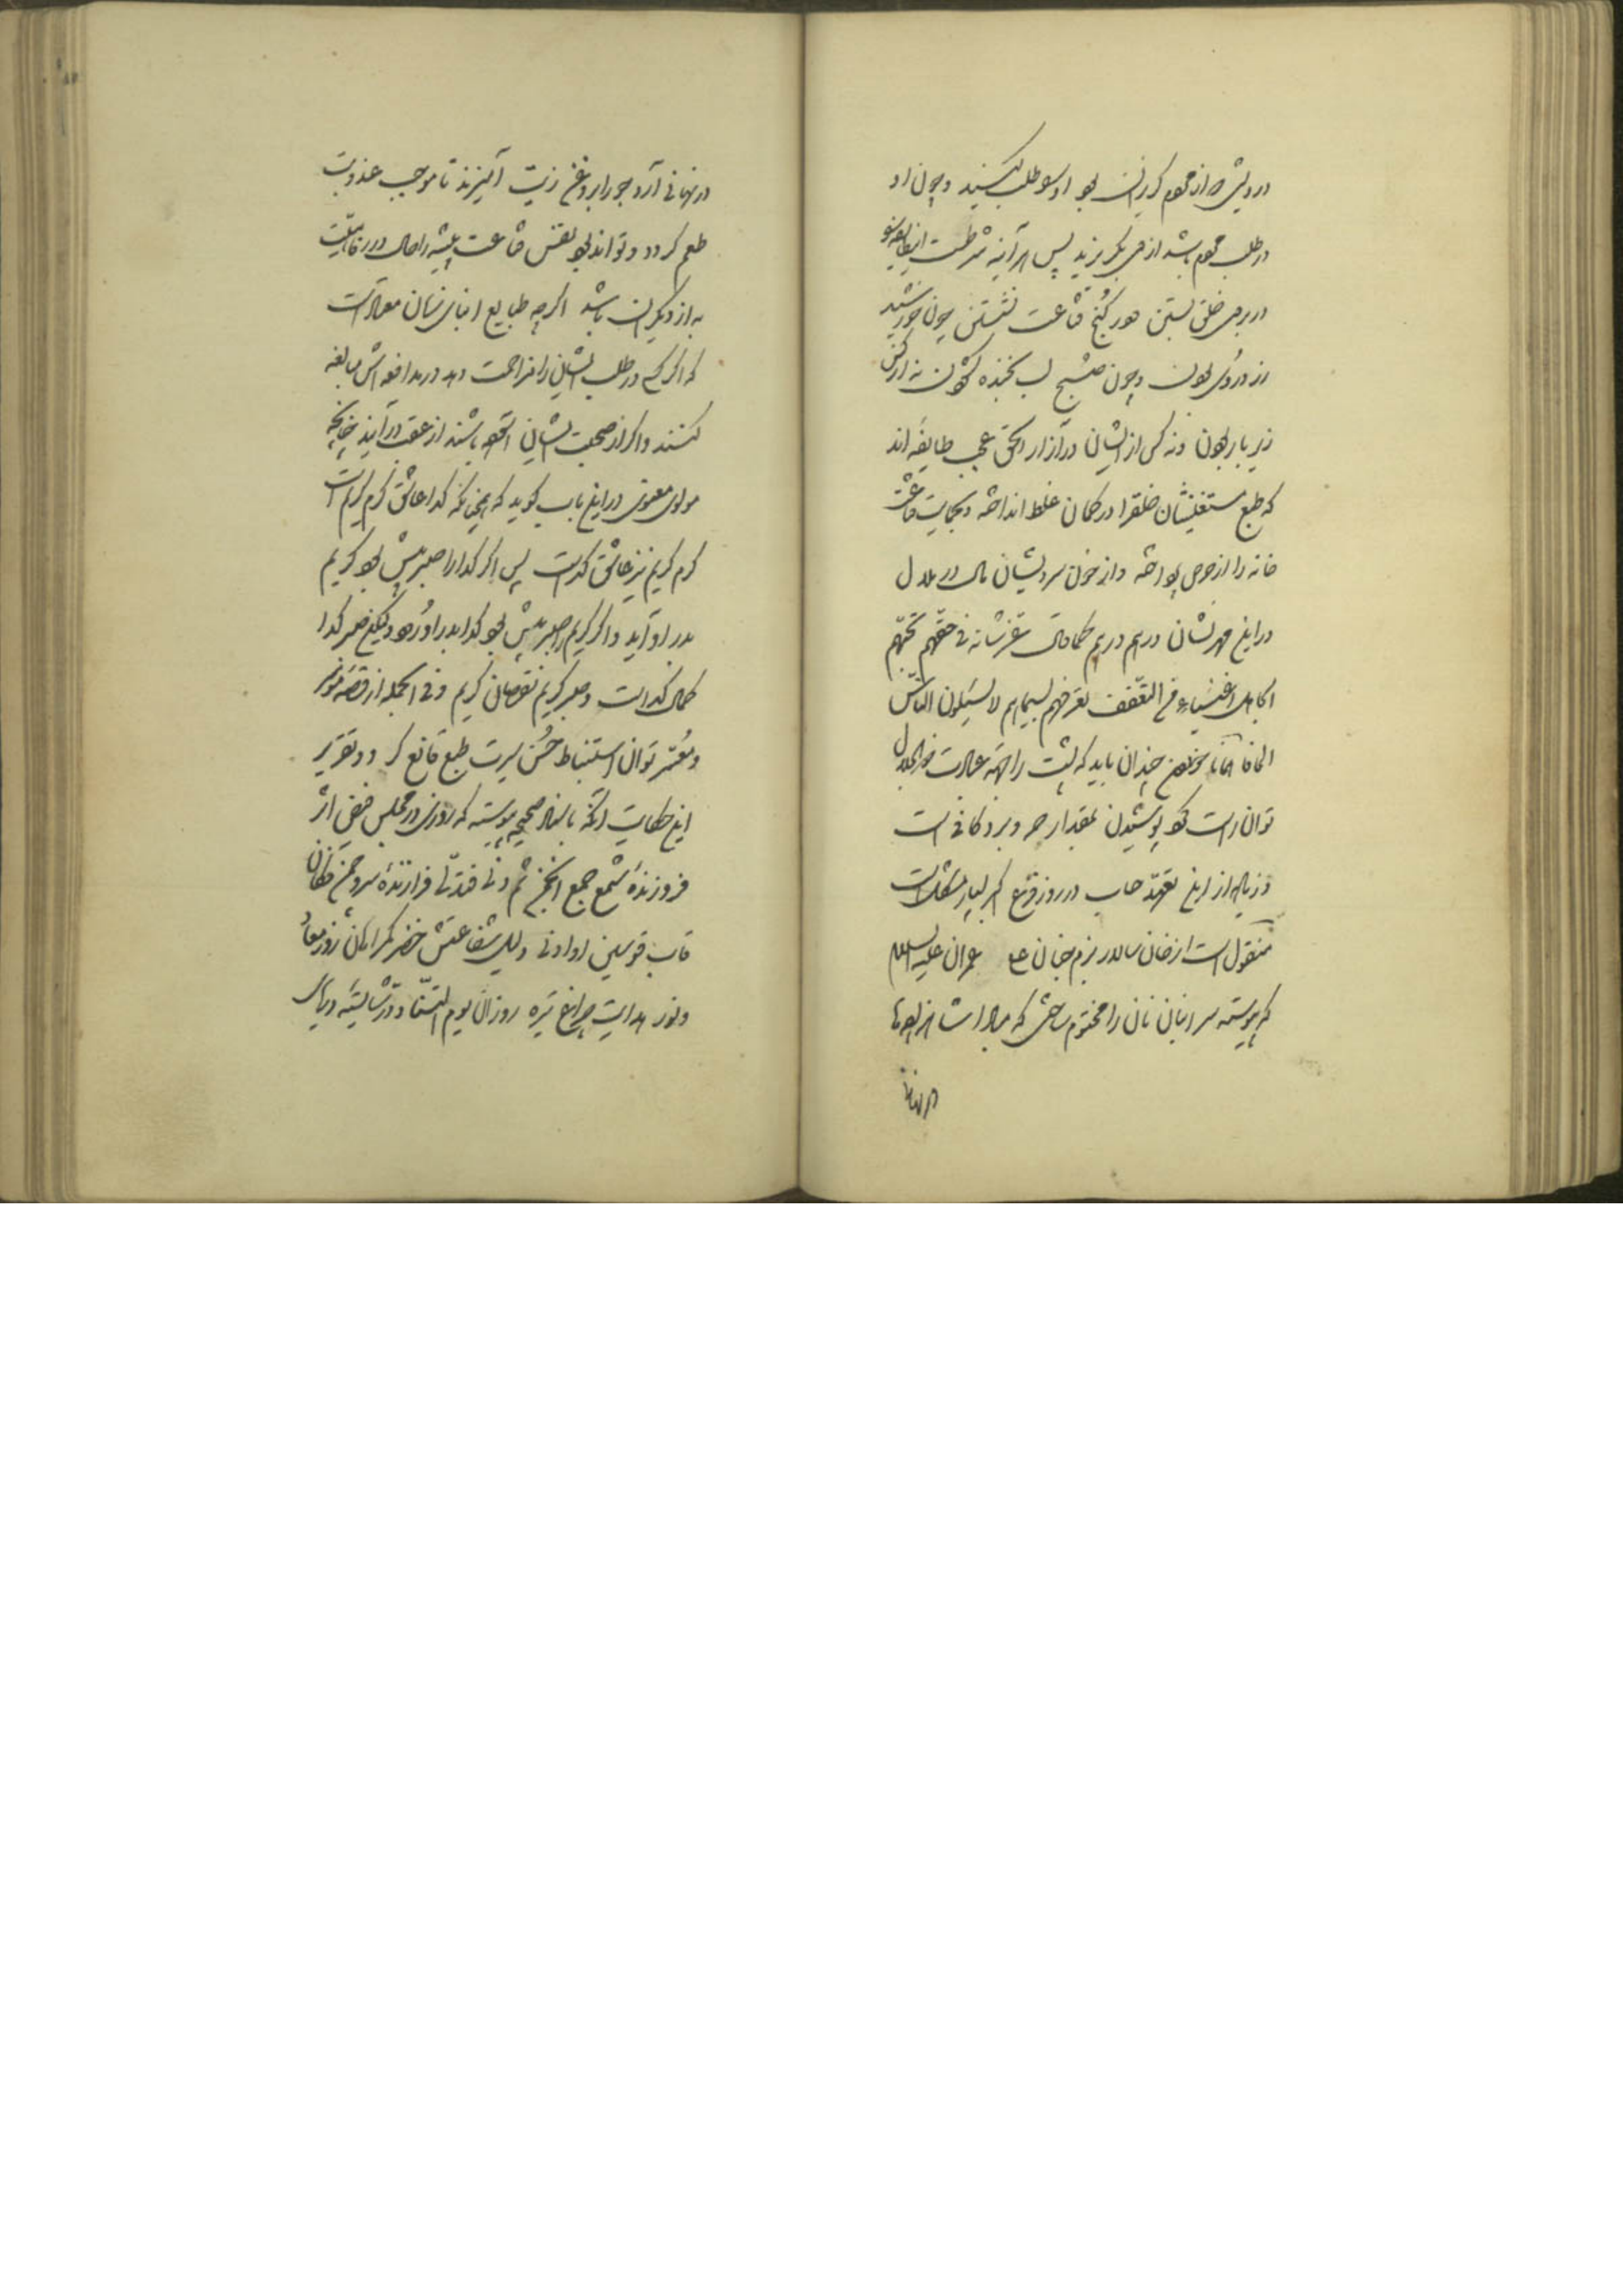 درویش از مردم گریزانست بود او سو طلب کنند و چون او
در طلب مردم باشد از وی بگریزند پس هر آینه شرطست
در بروی خلق بستن و در کنج قناعت نشستن چون خورشید
زرد روی بودن و چون صبح لب بخنده گشودن نه از کس
زیر بار بودن و نه کس از ایشان در آزار الحق عجب طایفه اند
که طبع مستغنیشان خلق را در گمان غلط انداخته و بحکایت قناعت
خانه را از حرص پرداخته و از خون درویشان مال
در این درهم و درم کما قال عز شانه فی حقهم یحسبهم
الجاهل اغنیاء من التعفف تعرفهم بسیماهم لا یسئلون الناس
الحافا چندان باید که پشت را بجهة عبادت ذوالجلال
توان راست کرد پوشیدن بمقدار حر و برد کافی است
و زیاده از این تعهد حساب در روز فزع اکبر بسیار مشکلست
منقول است از خان سالار بزم عمران علیه السلام
که پیوسته سر انبان نان را مختوم ساختی که مبادا
در نهانی
در نهانی آرد جو را بروغن زیت آمیزند تا موجب عذوبت
طعم گردد و تواند بود نفس قناعت پیشه را حال در رفاهیت
به از دیگران باشد اگر چه طبایع ابنای زمان
که اگر کسی در طلب ایشان را مزاحمت دهد در مدافعه اش مبالغه
کنند و اگر از صحبت ایشان باشند از عقب در آیند چنانچه
مولوی معنوی در این باب گوید که همچنانکه گدا عاشق کرم کریم است
کرم کریم نیز عاشق گداست پس اگر گدا را صبر بیش بود کریم
بدر او آید و اگر کریم را صبر بیش بود گدا بدر او رود و لیکن صبر گدا
کمال گداست و صبر کریم نقصان کریم و فی الجمله از قصه
و معتر توان استنباط حسن سیرت طبع قانع کرد و تقریر
این حکایت آنکه باسناد صحیح پیوسته که روزی در مجلس فیض اثر
فروزنده شمع جمع انجمن ثم دنی فتدلی فرازنده سرو چمن فکان
قاب قوسین او ادنی دلیل شفاعتش خضر گمراهان روز معاد
و نور هدایت چراغ تیره روزان یوم التناد در شایسته دریای